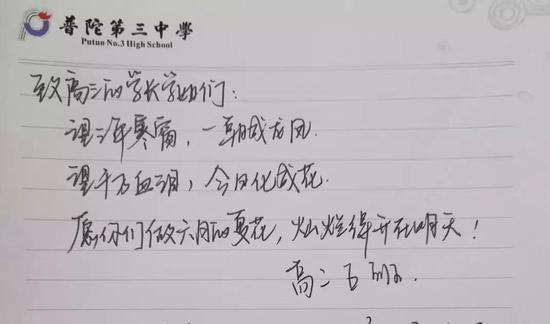 普陀第三中學
Putuo No.3 High School
致高三的学长学姐们:
理三年寒窗,一朝成龙凤.
理千万血泪,今日化成花.
愿你们做六月的夏花,灿烂得开在明天!
高二5班.